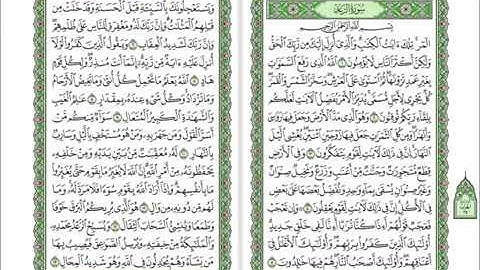 سُورَةُ الرَّعْدِ
بِسْمِ اللَّهِ الرَّحْمَٰنِ الرَّحِيمِ
الٓمٓر تِلْكَ ءَايَٰتُ الْكِتَٰبِ وَالَّذِىٓ أُنزِلَ إِلَيْكَ مِن رَّبِّكَ الْحَقُّ
وَلَٰكِنَّ أَكْثَرَ النَّاسِ لَا يُؤْمِنُونَ ١ اللَّهُ الَّذِى رَفَعَ السَّمَٰوَٰتِ
بِغَيْرِ عَمَدٍ تَرَوْنَهَا ثُمَّ اسْتَوَىٰ عَلَى الْعَرْشِ وَسَخَّرَ الشَّمْسَ وَالْقَمَرَ
كُلٌّ يَجْرِى لِأَجَلٍ مُّسَمًّى يُدَبِّرُ الْأَمْرَ يُفَصِّلُ الْءَايَٰتِ لَعَلَّكُم
بِلِقَآءِ رَبِّكُمْ تُوقِنُونَ ٢ وَهُوَ الَّذِى مَدَّ الْأَرْضَ وَجَعَلَ فِيهَا رَوَٰسِىَ
وَأَنْهَٰرًا وَمِن كُلِّ الثَّمَرَٰتِ جَعَلَ فِيهَا زَوْجَيْنِ اثْنَيْنِ يُغْشِى الَّيْلَ
النَّهَارَ إِنَّ فِى ذَٰلِكَ لَءَايَٰتٍ لِّقَوْمٍ يَتَفَكَّرُونَ ٣ وَفِى الْأَرْضِ
قِطَعٌ مُّتَجَٰوِرَٰتٌ وَجَنَّٰتٌ مِّنْ أَعْنَٰبٍ وَزَرْعٌ وَنَخِيلٌ صِنْوَانٌ
وَغَيْرُ صِنْوَانٍ يُسْقَىٰ بِمَآءٍ وَٰحِدٍ وَنُفَضِّلُ بَعْضَهَا عَلَىٰ بَعْضٍ
فِى الْأُكُلِ إِنَّ فِى ذَٰلِكَ لَءَايَٰتٍ لِّقَوْمٍ يَعْقِلُونَ ٤ وَإِن تَعْجَبْ
فَعَجَبٌ قَوْلُهُمْ أَءِذَا كُنَّا تُرَٰبًا أَءِنَّا لَفِى خَلْقٍ جَدِيدٍ
أُو۟لَٰٓئِكَ الَّذِينَ كَفَرُوا۟ بِرَبِّهِمْ وَأُو۟لَٰٓئِكَ الْأَغْلَٰلُ فِىٓ
أَعْنَاقِهِمْ وَأُو۟لَٰٓئِكَ أَصْحَٰبُ النَّارِ هُمْ فِيهَا خَٰلِدُونَ ٥
وَيَسْتَعْجِلُونَكَ بِالسَّيِّئَةِ قَبْلَ الْحَسَنَةِ وَقَدْ خَلَتْ مِن
قَبْلِهِمُ الْمَثُلَٰتُ وَإِنَّ رَبَّكَ لَذُو مَغْفِرَةٍ لِّلنَّاسِ عَلَىٰ ظُلْمِهِمْ
وَإِنَّ رَبَّكَ لَشَدِيدُ الْعِقَابِ ٦ وَيَقُولُ الَّذِينَ كَفَرُوا۟ لَوْلَآ
أُنزِلَ عَلَيْهِ ءَايَةٌ مِّن رَّبِّهِ إِنَّمَآ أَنتَ مُنذِرٌ وَلِكُلِّ قَوْمٍ
هَادٍ ٧ اللَّهُ يَعْلَمُ مَا تَحْمِلُ كُلُّ أُنثَىٰ وَمَا تَغِيضُ الْأَرْحَامُ
وَمَا تَزْدَادُ وَكُلُّ شَىْءٍ عِندَهُ بِمِقْدَارٍ ٨ عَٰلِمُ الْغَيْبِ
وَالشَّهَٰدَةِ الْكَبِيرُ الْمُتَعَالِ ٩ سَوَآءٌ مِّنكُم مَّنْ
أَسَرَّ الْقَوْلَ وَمَن جَهَرَ بِهِ وَمَنْ هُوَ مُسْتَخْفٍ بِالَّيْلِ وَسَارِبٌ
بِالنَّهَارِ ١٠ لَهُ مُعَقِّبَٰتٌ مِّن بَيْنِ يَدَيْهِ وَمِنْ خَلْفِهِ
يَحْفَظُونَهُ مِنْ أَمْرِ اللَّهِ إِنَّ اللَّهَ لَا يُغَيِّرُ مَا بِقَوْمٍ حَتَّىٰ يُغَيِّرُوا۟
مَا بِأَنفُسِهِمْ وَإِذَآ أَرَادَ اللَّهُ بِقَوْمٍ سُوٓءًا فَلَا مَرَدَّ لَهُ وَمَا
لَهُم مِّن دُونِهِ مِن وَالٍ ١١ هُوَ الَّذِى يُرِيكُمُ الْبَرْقَ خَوْفًا
وَطَمَعًا وَيُنشِئُ السَّحَابَ الثِّقَالَ ١٢ وَيُسَبِّحُ الرَّعْدُ بِحَمْدِهِ
وَالْمَلَٰٓئِكَةُ مِنْ خِيفَتِهِ وَيُرْسِلُ الصَّوَٰعِقَ فَيُصِيبُ بِهَا
مَن يَشَآءُ وَهُمْ يُجَٰدِلُونَ فِى اللَّهِ وَهُوَ شَدِيدُ الْمِحَالِ ١٣